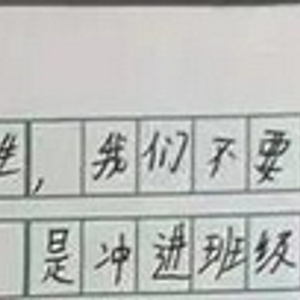 ，我们不要
是冲进班级